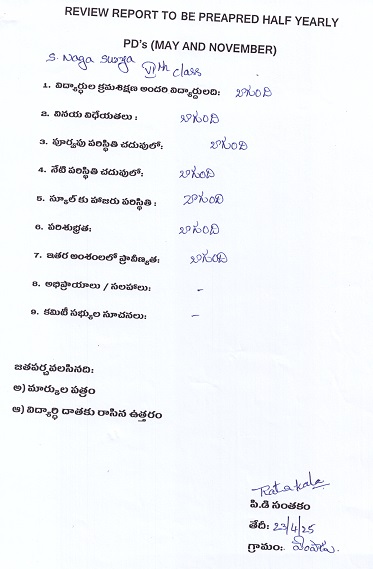 REVIEW REPORT TO BE PREAPRED HALF YEARLY
PD's (MAY AND NOVEMBER)
S. Naga Surya
VIth class
1. విద్యార్ధుల క్రమశిక్షణ అందరి విద్యార్ధులది: బాగుంది
2. వినయ విధేయతలు : బాగుంది
3. పూర్వపు పరిస్థితి చదువులో: బాగుంది
4. నేటి పరిస్థితి చదువులో: బాగుంది
5. స్కూల్ కు హాజరు పరిస్థితి : బాగుంది
6. పరిశుభ్రత: బాగుంది
7. ఇతర అంశంలలో ప్రావీణ్యత: బాగుంది
8. అభిప్రాయాలు / సలహాలు: -
9. కమిటీ సభ్యుల సూచనలు: -
జతపర్చవలసినది:
అ) మార్కుల పత్రం
ఆ) విద్యార్ధి దాతకు రాసిన ఉత్తరం
Ratnakala
పి.డి సంతకం
తేదీ: 23/4/25
గ్రామం: